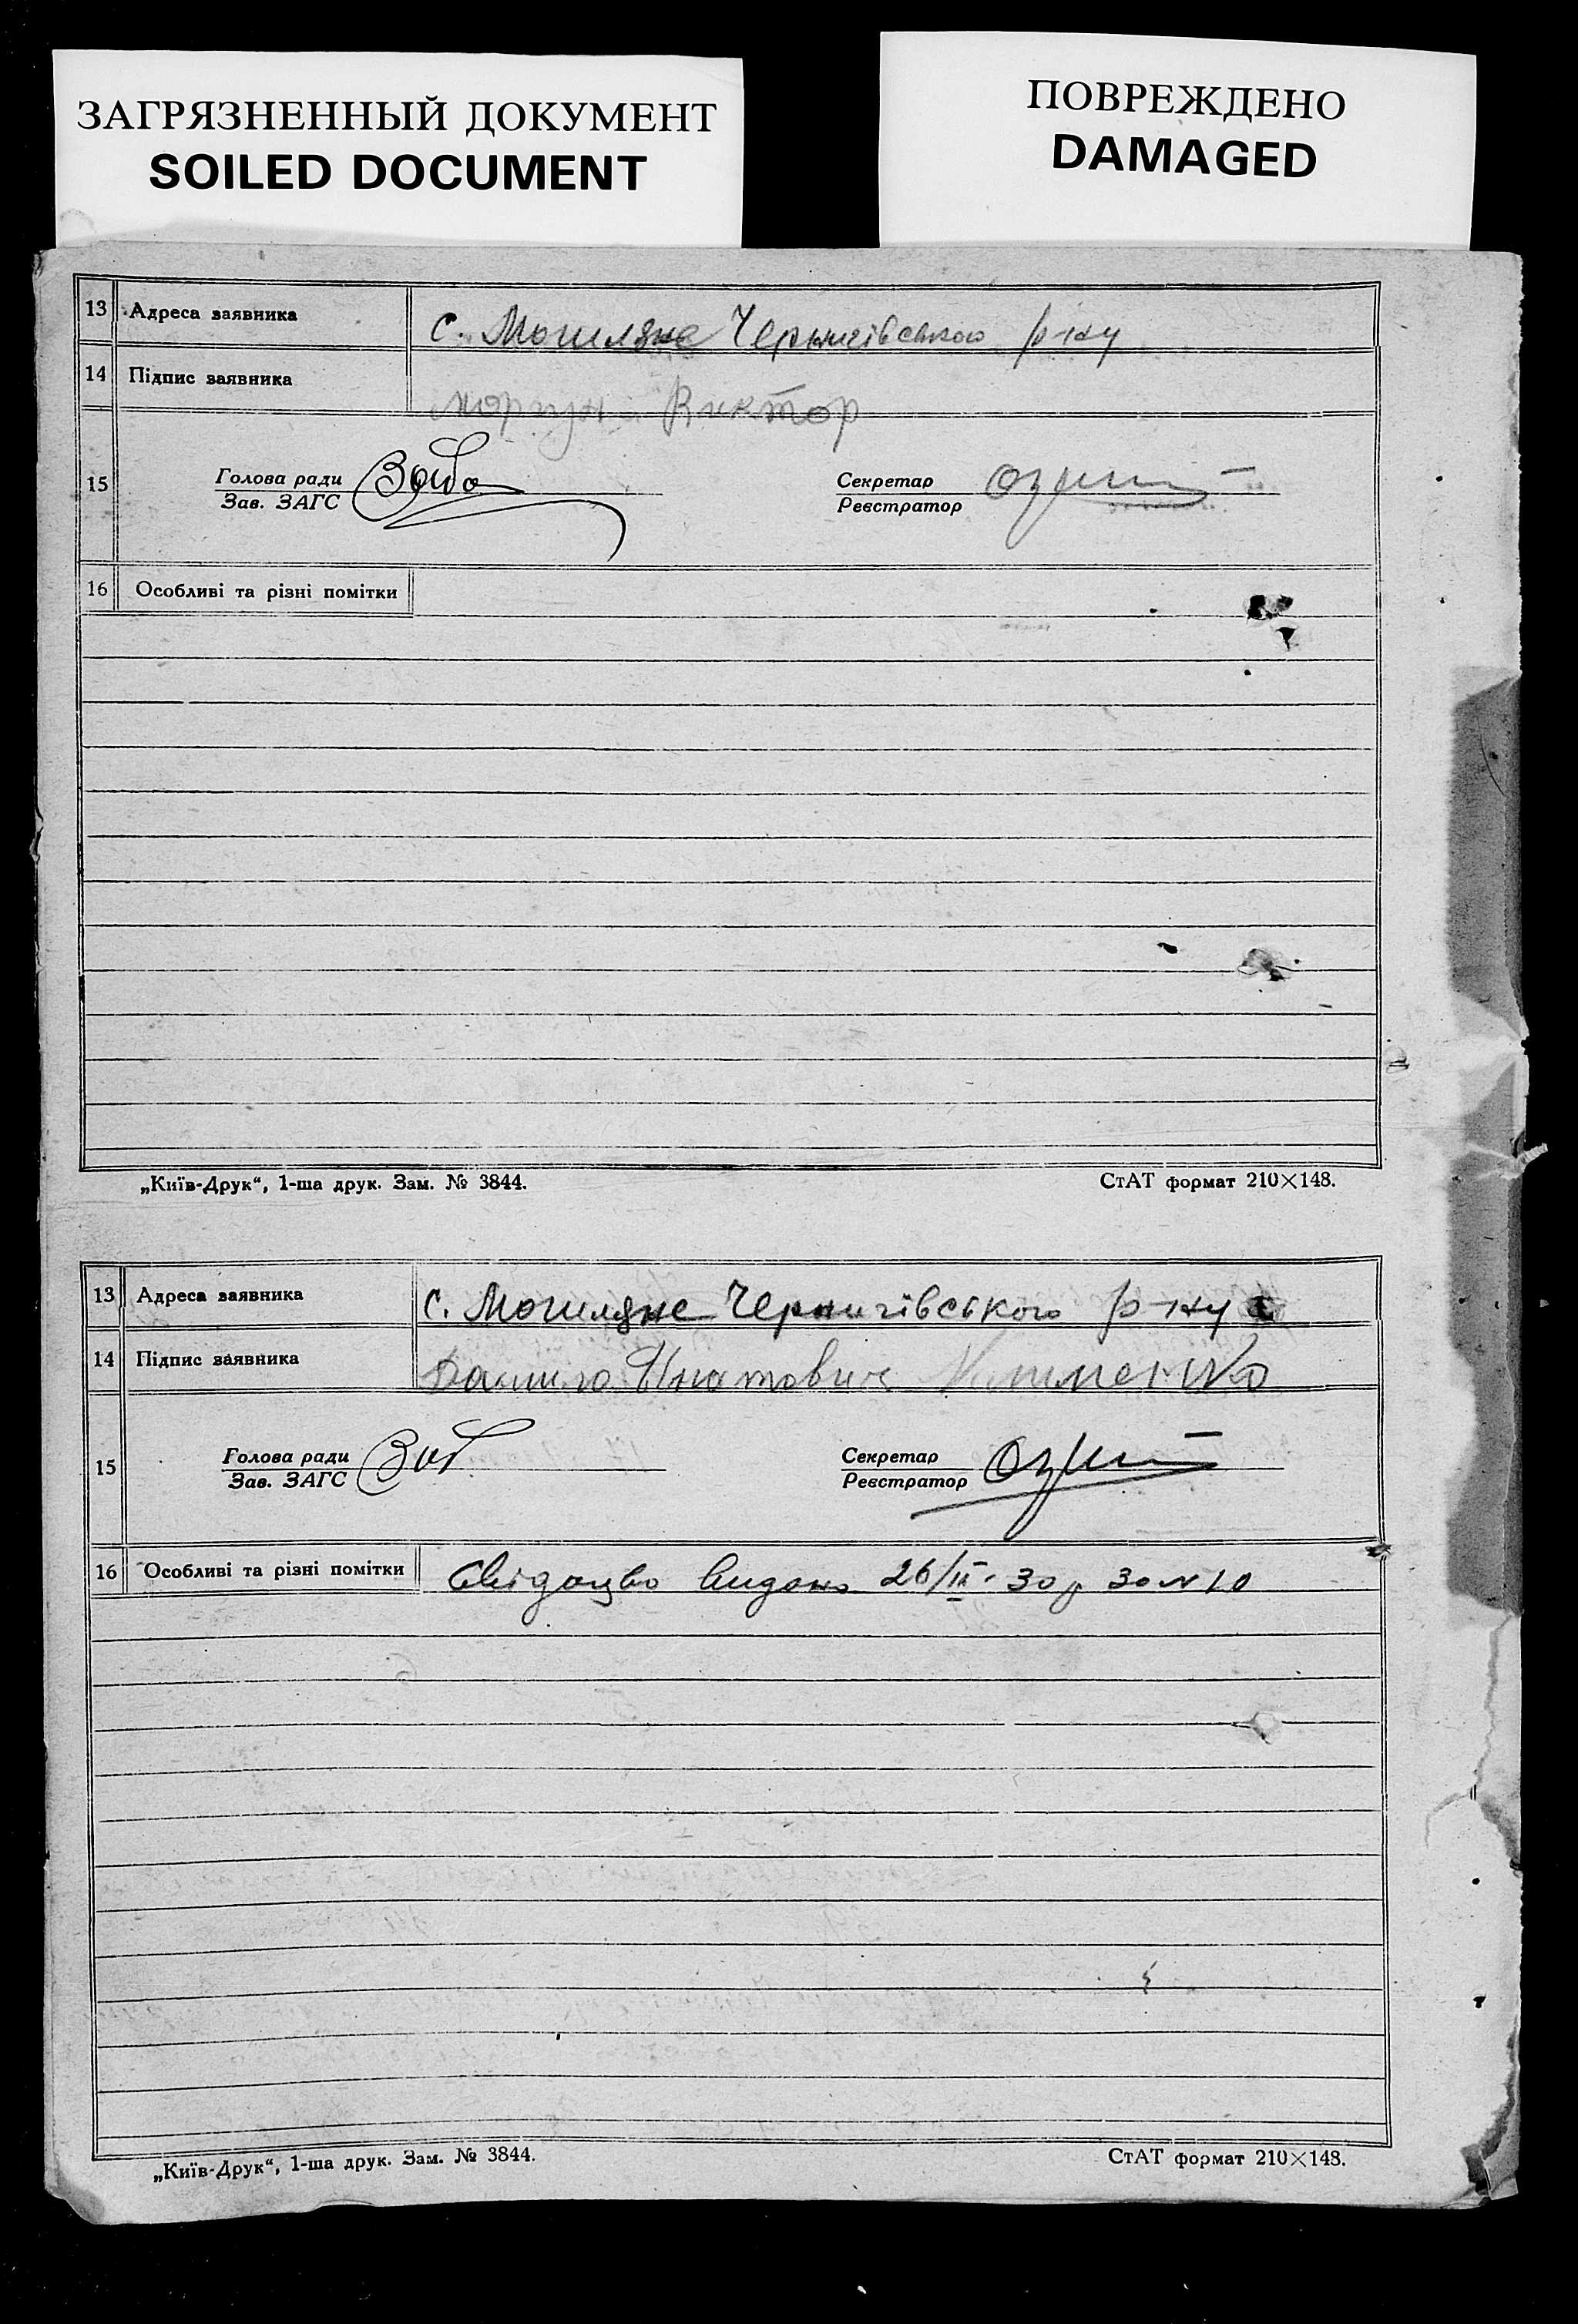 ЗАГРЯЗНЕННЫЙ ДОКУМЕНТ
SOILED DOCUMENT
ПОВРЕЖДЕНО
DAMAGED
13 Адреса заявника с. Могиляне Чернигівського р-ну
14 Підпис заявника моргун Виктор
15 Голова ради
Зав. ЗАГС
Секретар
Реєстратор
16 Особливі та різні помітки
„Київ-Друк“, 1-ша друк. Зам. № 3844. СтАТ формат 210×148.
13 Адреса заявника с. Могиляне Чернигівського р-ну
14 Підпис заявника Данило Игнатович
15 Голова ради
Зав. ЗАГС
Секретар
Реєстратор
16 Особливі та різні помітки Свідоцво видано 26/III 30 р за № 10
„Київ-Друк“, 1-ша друк. Зам. № 3844. СтАТ формат 210×148.